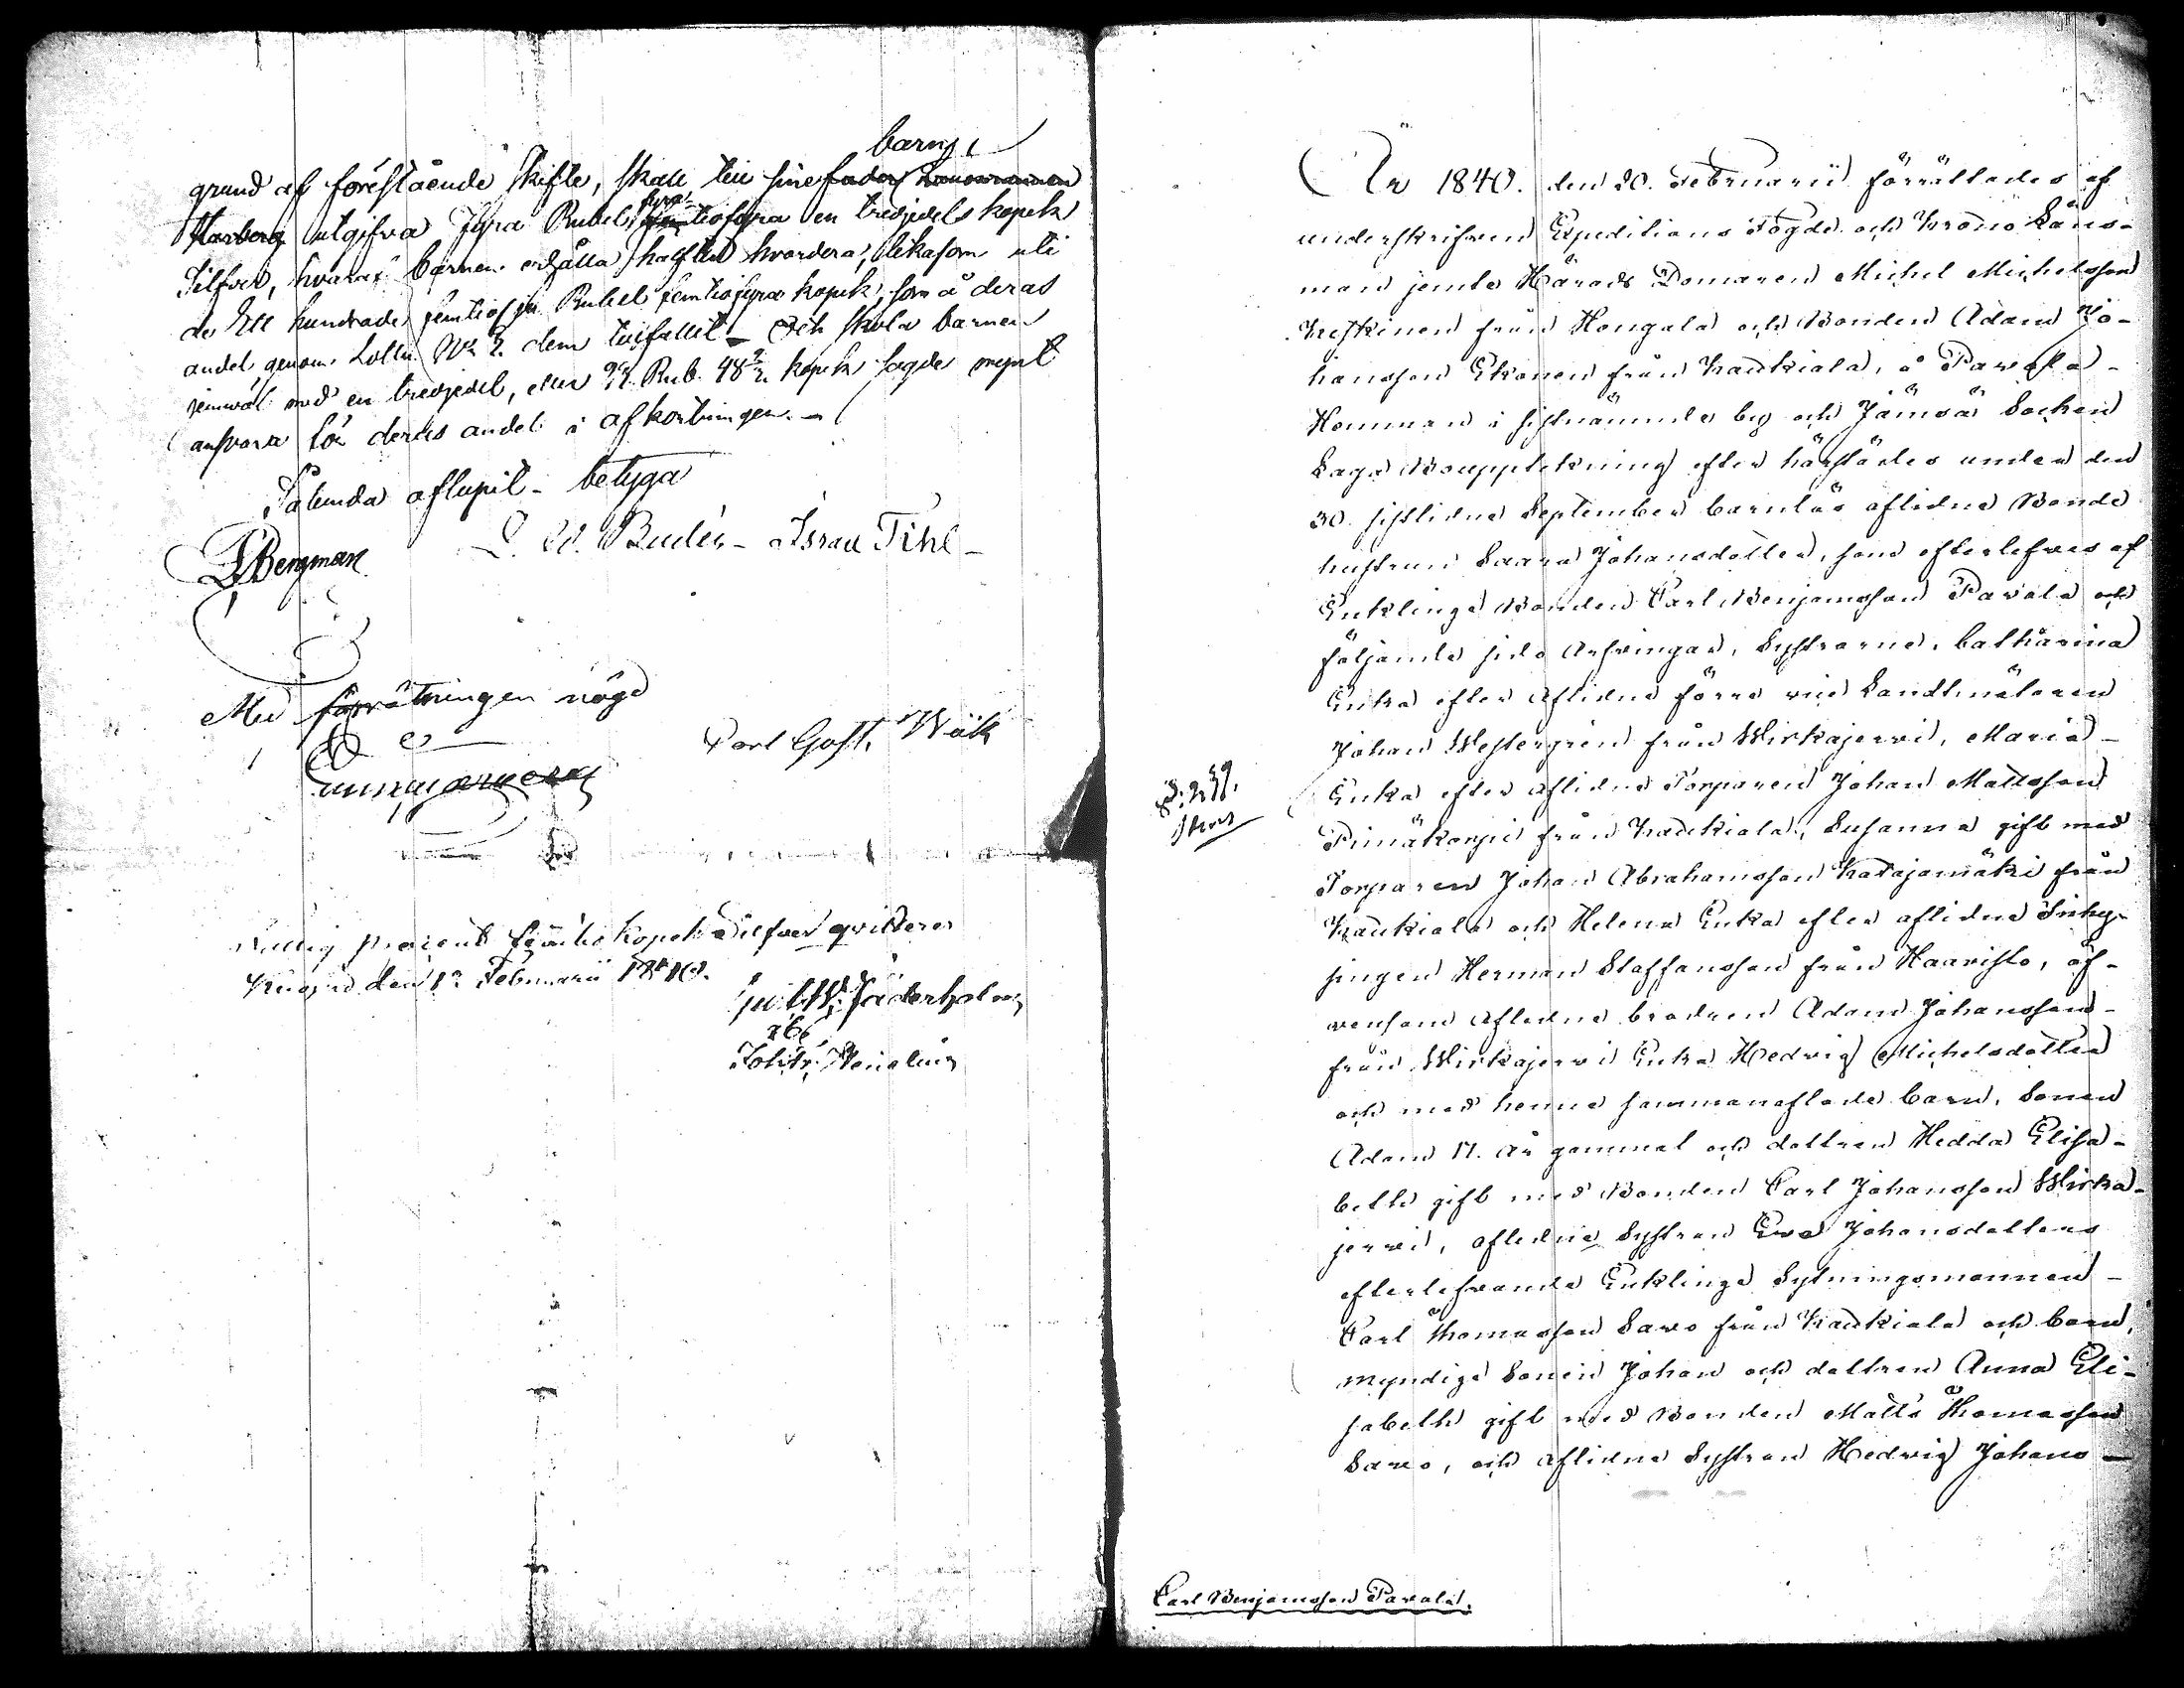 barns
grund af förestående skifte, skall till sine fader
Harberg utgifva Fyra Rubel fyratiofyra en tredjedels kopek
Silfver, hvaraf barnen erhålla hälften hvardera, likasom uti
de Ett hundrade femtiosju Rubel femtiofyra kopek, som å deras
andel, genom Lotten N° 2. dem tillfallit_ Och skola barnen
jemväl med en tredjedel, eller Rub. 48 2/3 kopek sagde mynt
ansvara för deras andel i afkortningen._
Sålunda aflupit_ betyga
Bergman L. Ad. Budén_ Israel Tihl_
Med förrättningen nöjd
Carl Gust. Wäk
procent femtio kopek Silfver qvitteras
den 1° Februarii 1840.
Jäderholm

År 1840. den 20. Februarii förrättades af
underskrifven Expeditions Fogde och Krono Läns-
man jemte Härads Domaren Michel Michelsson
Keskinen från Hongala och Bonden Adam Jo-
hansson Ekonen från Kaukiala, å Pavala_
Hemman i sistnämnde by och Jämsä Socken
Laga Bouppteckning efter härstädes under den
30. sistlidne September barnlös aflidne Bonde
hustrun Saara Johansdotter, som efterlefves af
Enklinge Bonden Carl Benjamsson Pavala och
följande sido Arfvingar, Systrarne, Catharina
Enka efter aflidne förre vice Landtmätaren
Johan Westergrén från Wirkajervi, Maria_
Enka efter aflidne Torparen Johan Mattsson
Pimäkorpi från Kaukiala, Susanna gift med
Torparen Johan Abrahamsson Katajamäki från
Kaukiala och Helena Enka efter aflidne Inhy-
singen Herman Staffansson från Haavisto, äf-
vensom aflidne brodren Adam Johansson_
från Wirkajervi Enka Hedvig Michelsdotter
och med henne sammanaflade barn, Sonen
Adam 17. År gammal och dottren Hedda Elisa-
beth gift med Bonden Carl Johansson Wirka-
jervi, aflidne Systren Eva Johansdotters
efterlefvande Enklinge Sytningsmannen_
Carl Thomasson Savo från Kaukiala och barn,
myndige Sonen Johan och dottren Anna Eli-
sabeth gift med Bonden Matts Thomasson
Savo, och aflidne Systren Hedvig Johans_
Carl Benjamsson Pavala.